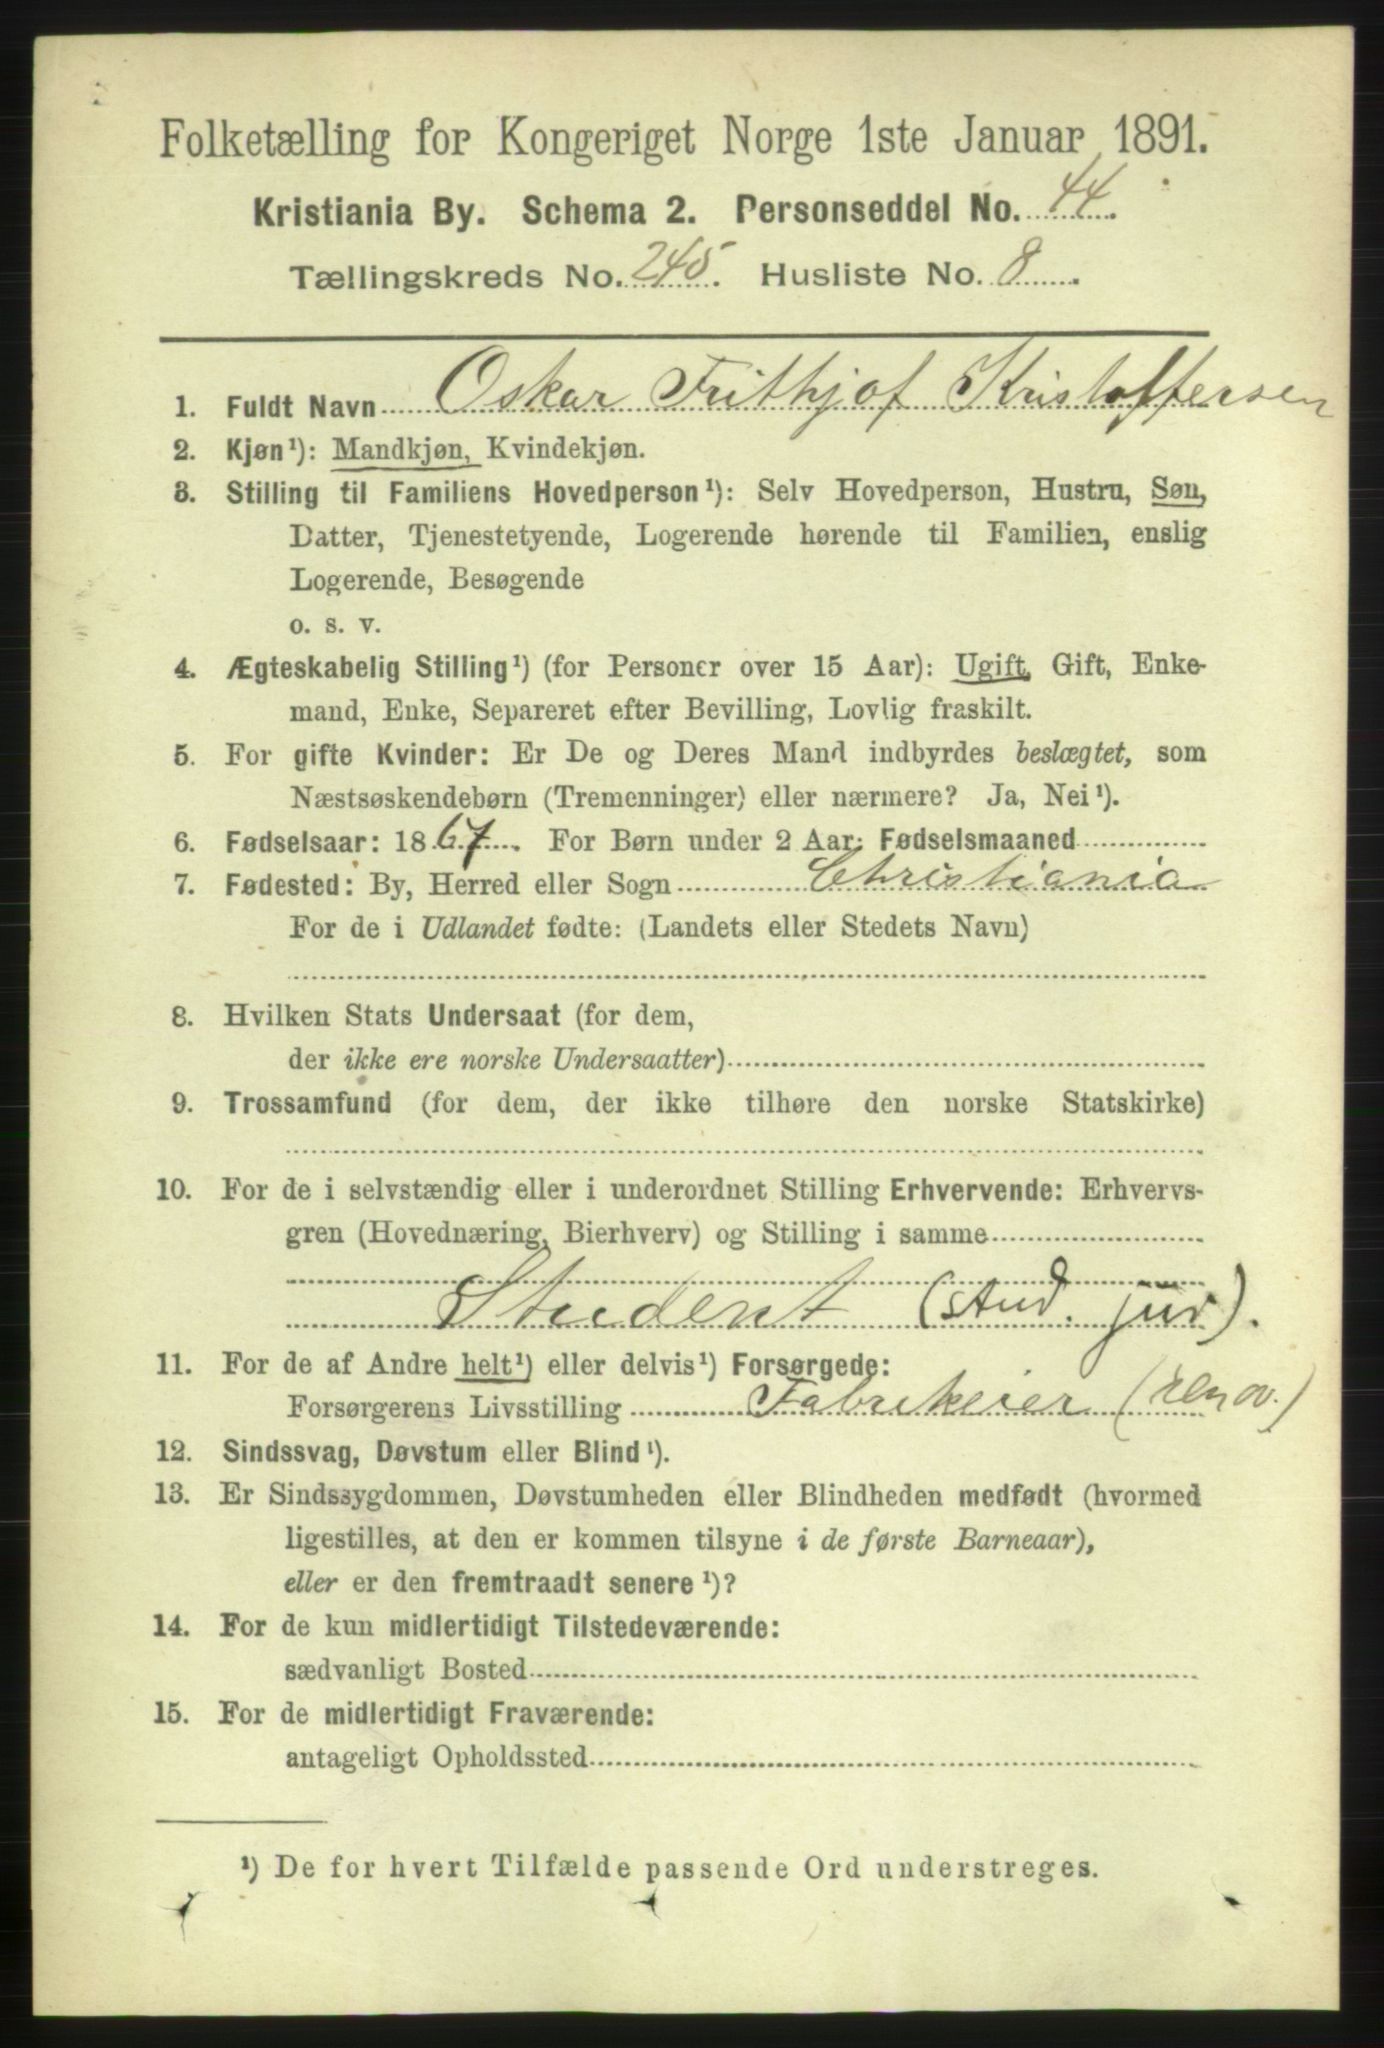 Folketælling for Kongeriget Norge 1ste Januar 1891.
Kristiania By. Schema 2. Personseddel No. 44.
Tællingskreds No. 245. Husliste No. 8
1. Fuldt Navn Oskar Frithjof Kristoffersen
2. Kjøn¹): Mandkjøn, Kvindekjøn.
3. Stilling til Familiens Hovedperson¹): Selv Hovedperson, Hustru, Søn,
Datter, Tjenestetyende, Logerende hørende til Familien, enslig
Logerende, Besøgende
o. s. v.
4. Ægteskabelig Stilling¹) (for Personer over 15 Aar): Ugift, Gift, Enke-
mand, Enke, Separeret efter Bevilling, Lovlig fraskilt.
5. For gifte Kvinder: Er De og Deres Mand indbyrdes beslægtet, som
Næstsøskendebørn (Tremenninger) eller nærmere? Ja, Nei¹).
6. Fødselsaar: 1867. For Børn under 2 Aar: Fødselsmaaned
7. Fødested: By, Herred eller Sogn Christiania
For de i Udlandet fødte: (Landets eller Stedets Navn)
8. Hvilken Stats Undersaat (for dem,
der ikke ere norske Undersaatter)
9. Trossamfund (for dem, der ikke tilhøre den norske Statskirke)
10. For de i selvstændig eller i underordnet Stilling Erhvervende: Erhvervs-
gren (Hovednæring, Bierhverv) og Stilling i samme
Student (stud. jur).
11. For de af Andre helt¹) eller delvis¹) Forsørgede:
Forsørgerens Livsstilling Fabrikeier (renov.)
12. Sindssvag, Døvstum eller Blind¹).
13. Er Sindssygdommen, Døvstumheden eller Blindheden medfødt (hvormed
ligestilles, at den er kommen tilsyne i de første Barneaar),
eller er den fremtraadt senere¹)?
14. For de kun midlertidigt Tilstedeværende:
sædvanligt Bosted
15. For de midlertidigt Fraværende:
antageligt Opholdssted
¹) De for hvert Tilfælde passende Ord understreges.